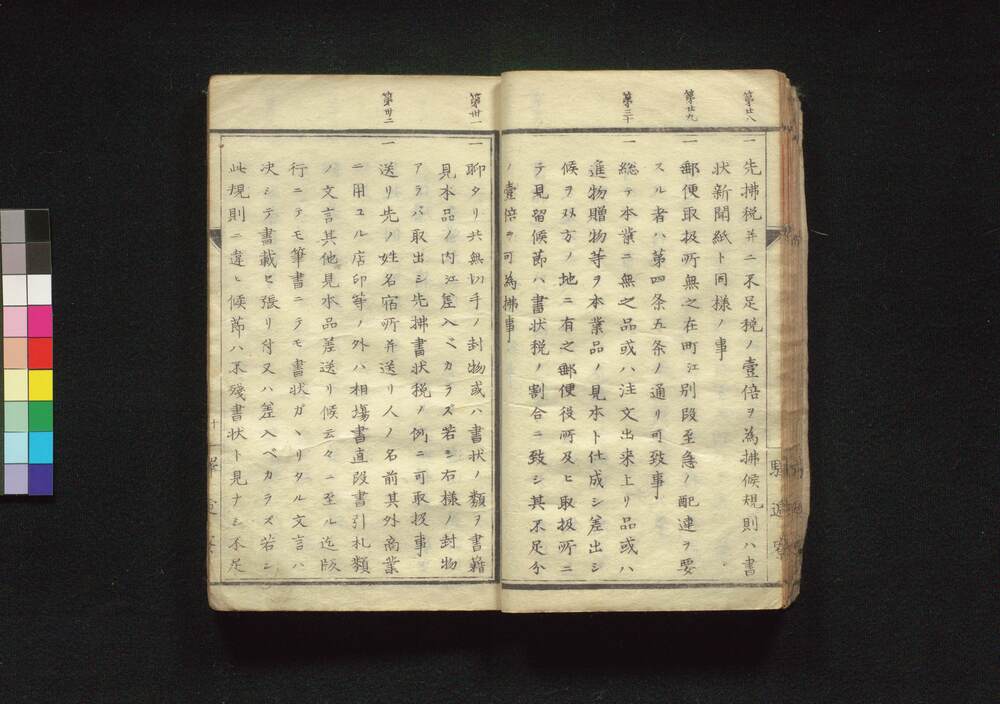 第廿八
一 先拂税并ニ不足税ノ壹倍ヲ為拂候規則ハ書
状新聞紙ト同様ノ事
第廿九
一 郵便取扱所無之在町江別段至急ノ配達ヲ要
スル者ハ第四条五条ノ通リ可致事
第三十
一 総テ本業ニ無之品或ハ注文出来上リ品或ハ
進物贈物等ヲ本業品ノ見本ト仕成シ差出シ
候ヲ双方ノ地ニ有之郵便役所及ヒ取扱所ニ
テ見留候節ハ書状税ノ割合ニ致シ其不足分
ノ壹倍ヲ可為拂事
第卅一
一 聊タリ共無切手ノ封物或ハ書状ノ類ヲ書籍
見本品ノ内江差入ベカラズ若シ右様ノ封物
アラバ取出シ先拂書状税ノ例ニ可取扱事
第卅二
一 送リ先ノ姓名宿所并送リ人ノ名前其外商業
ニ用ユル店印等ノ外ハ相塲書直段書引札類
ノ文言其他見本品差送リ候云々ニ至ル迄版
行ニテモ筆書ニテモ書状ガヽリタル文言ハ
决シテ書載セ張リ付又ハ差入ベカラズ若シ
此規則ニ違ヒ候節ハ不殘書状ト見ナシ不足
驛逓寮